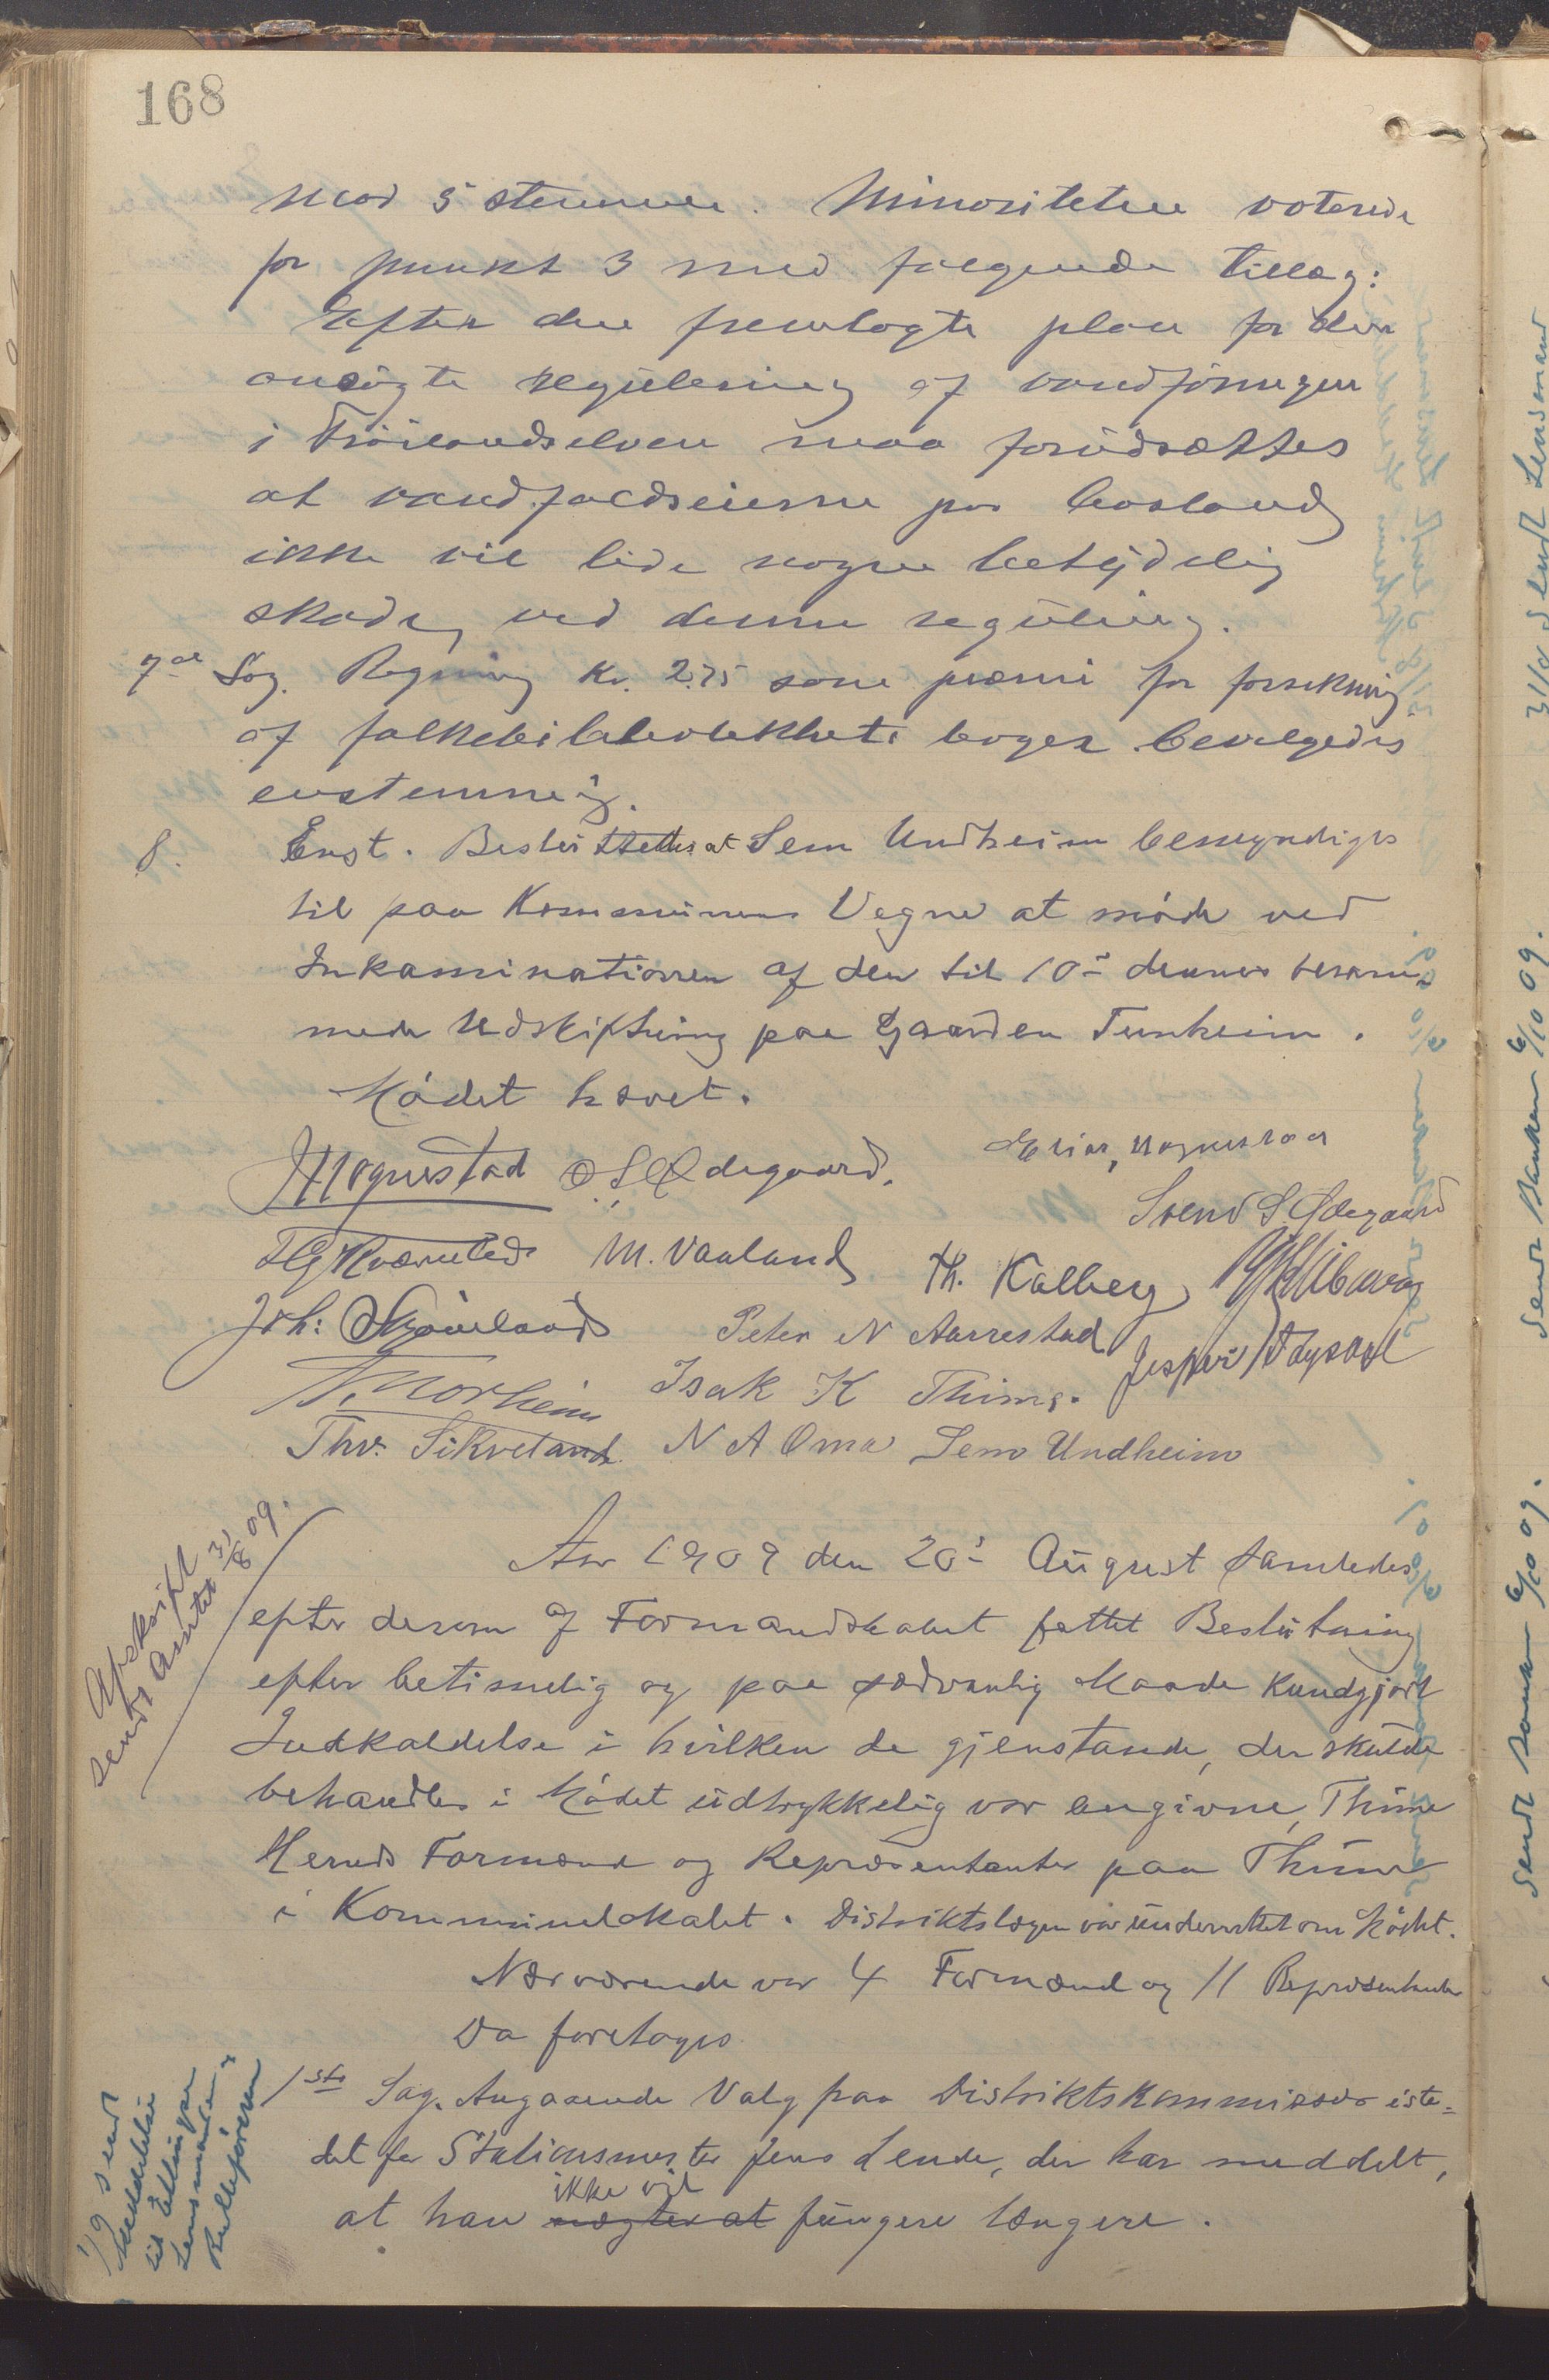 168
mod 5 stemmer. Minoriteten voterede
for punkt 3 med følgende tillæg:
Efter den fremlagte plan for den
ansøgte regulering af vandføringen
i Frøilandselven maa forudsættes
at vandfaldseierne paa
ikke vil lide nogen betydelig
skade ved denne regulering.
7de Sag. Regning Kr. 2.75 som præmi for forsikring
af folkebibliotekhets bøger bevilgedes
enstemmig.
8. Enst. Besluttedes at Sem Undheim bemyndiges
til paa Kommunens Vegne at møde ved
Inkaminationen af den til 10de dennes beram-
mede Udskiftning paa Gaarden Tunheim.
Mødet hævet.
Hognestad O. S. Ødegaard. Elias Hognestad
Svend S. Ødegaard
M. Vaaland Th. Kalberg
Joh: Peter N Aarrestad
Isak K Thime. Jesper
Thv. Sikveland N A Oma Sem Undheim
Afskrift
sendt Amtet 31/8 09.
Aar 1909 den 20de August samledes
efter derom af Formandskabet fattet Beslutning
efter betimelig og paa sædvanlig Maade kundgjort
Indkaldelse i hvilken de gjenstande, der skulde
behandles i Mødet udtrykkelig var angivne, Thime
Herreds Formænd og Repræsentanter paa Thime
i Kommunelokalet. Distriktslægen var underrettet om Mødet.
Nærværende var 4 Formænd og 11 Repræsentanter
Da foretoges
1ste Sag. Angaaende Valg paa Distriktskommissær iste-
det for Stationsmester Jens Lende, der har meddelt,
at han nægter at ikke vil fungere længere.
1/9 sendt
Meddelelse
til Ellingsen
Lensmanden &
Rulleføreren
31/8 sendt Lensmand
Sendt Banken 6/10 09.
Sendt Banken 6/10 09.